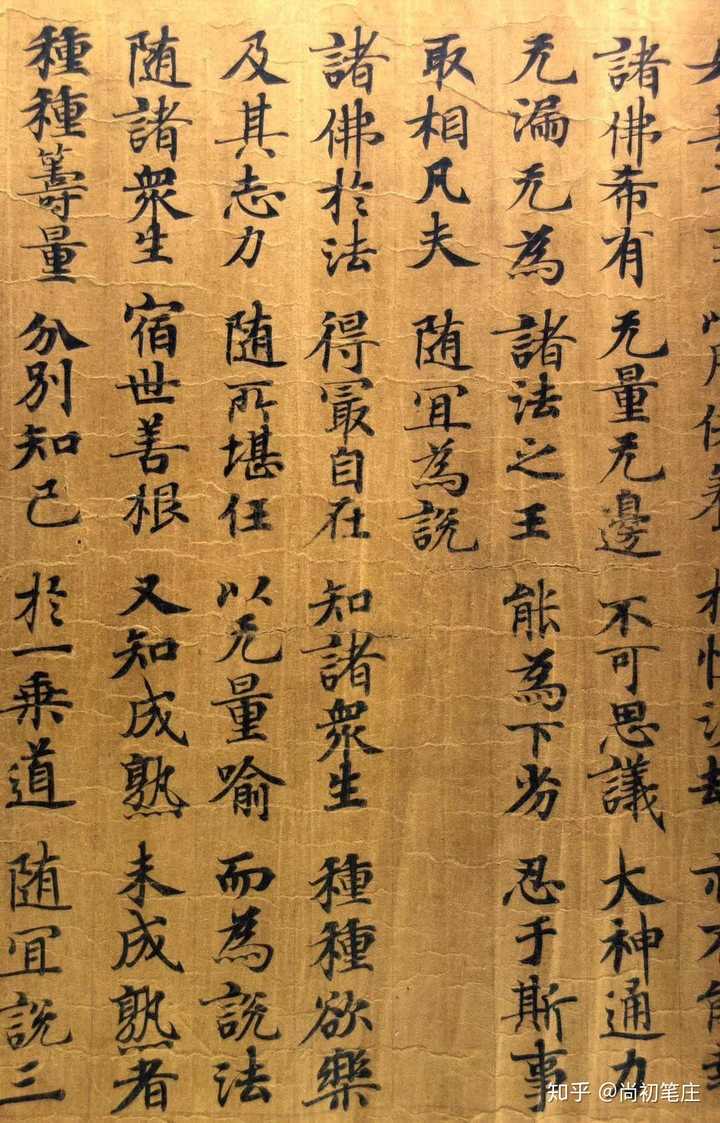 諸佛希有 无量无邊 不可思議 大神通力
无漏无為 諸法之王 能為下劣 忍于斯事
取相凡夫 随冝為説
諸佛於法 得冣自在 知諸衆生 種種欲樂
及其志力 随所堪任 以无量喻 而為説法
随諸衆生 宿世善根 又知成熟 未成熟者
種種籌量 分別知已 於一乗道 随冝説三
知乎 @尚初笔庄